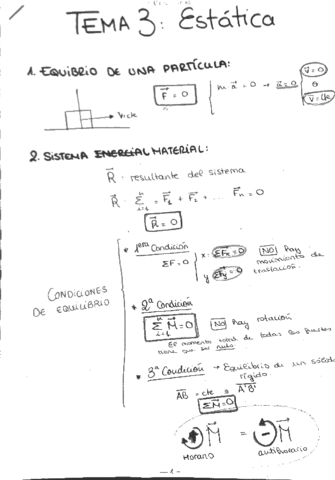 TEMA 3: Estática
1. EQUIBRIO DE UNA PARTÍCULA:
F⃗ = 0
m a⃗ = 0 → a⃗ = 0
v⃗ = 0
v⃗ = cte
v cte
2. SISTEMA MATERIAL:
R⃗ resultante del sistema
R⃗ = Σ = F⃗₁ + F⃗₂ + ... F⃗ₙ = 0
R⃗ = 0
CONDICIONES DE EQUILIBRIO
* 1era Condición
ΣF = 0
x: ΣFx = 0
y ΣFy = 0
NO hay movimiento de traslación.
* 2ª Condición
Σ M⃗ = 0
NO hay rotación
El momento total de todas las fuerzas tiene que ser nulo.
* 3ª Condición → Equilibrio de un sólido rígido.
AB = cte = A'B'
ΣM⃗ = 0
+ M⃗ = - M⃗
Horario
antihorario
- 1 -